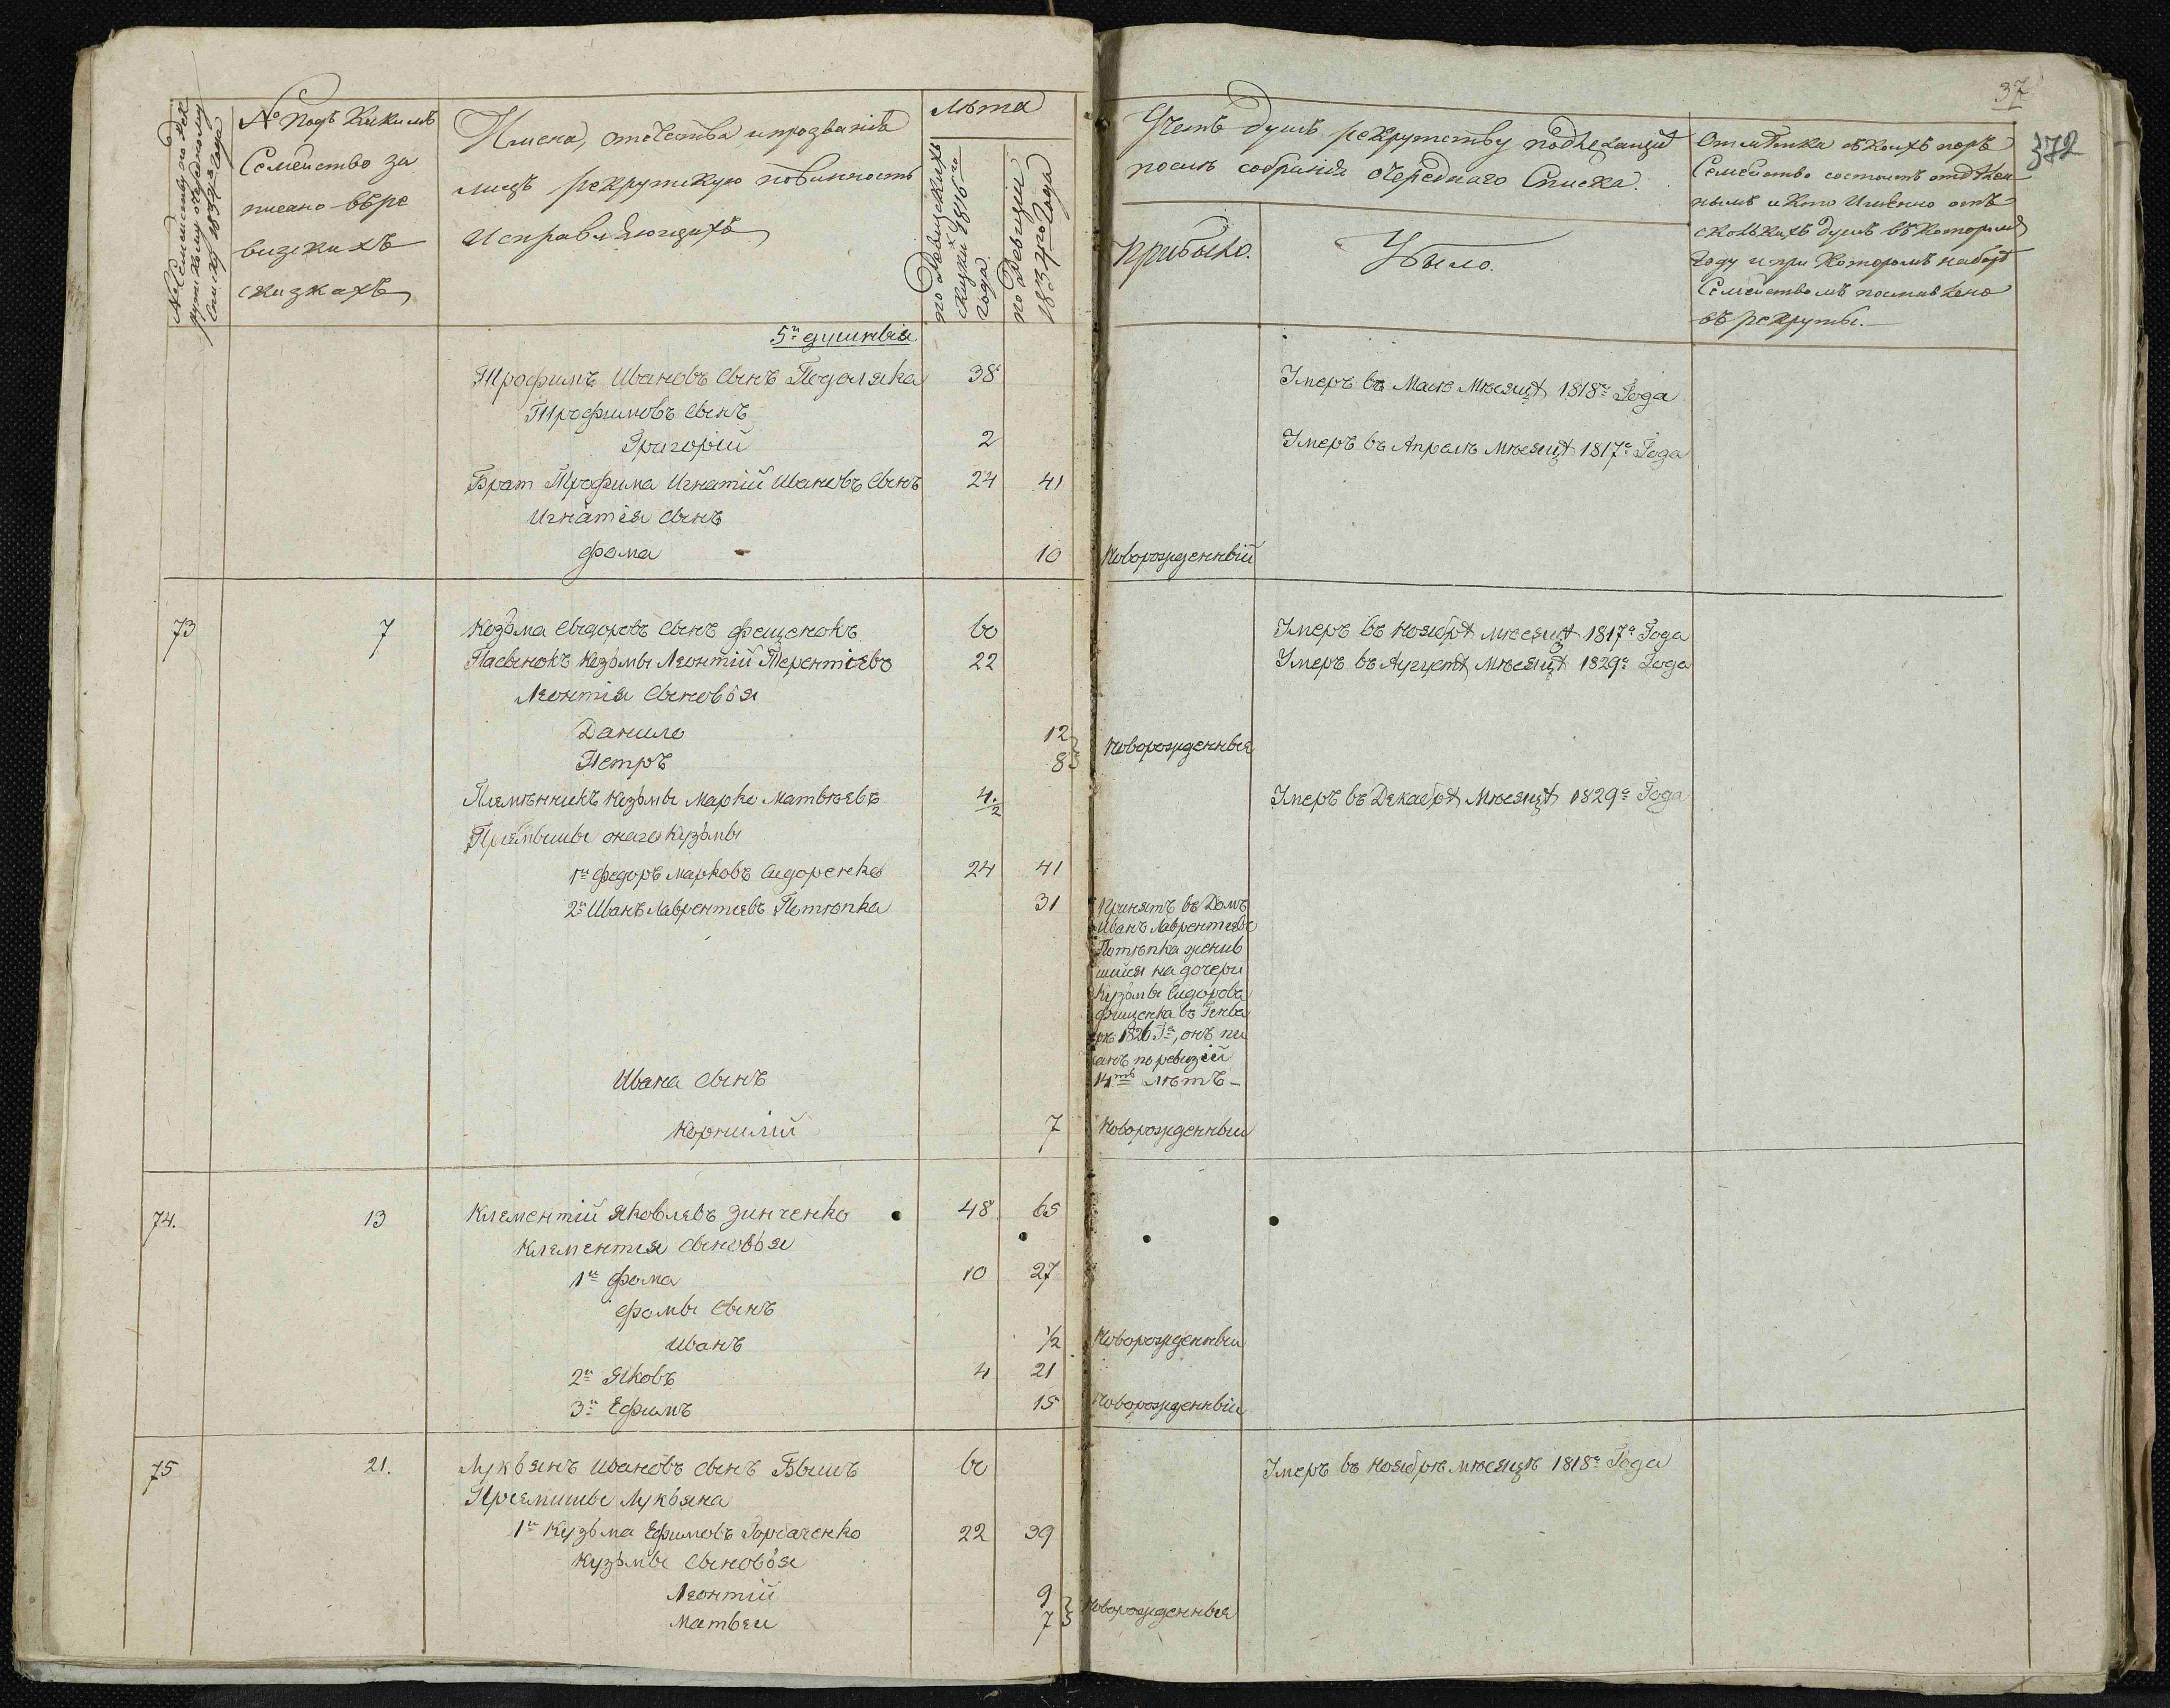 37
372
№ Семейству по рек
рутскому очередному
списку 1832го года
№ подъ какимъ
Семейство за
писано въ ре
визскихъ
сказкахъ
Имена, отечества и прозванiя
лицъ рекрутскую повинность
исправляющихъ
Лѣта
по Ревизскихъ
сказки 1816го
года
по Ревизiи
183 го Года
Учетъ душъ рекрутству подлежащихъ
послѣ собранiя очереднаго Списка.
Прибыло.
Убыло.
Отмѣтка съ коихъ поръ
Семейство состоитъ отдѣлен
нымъ и кто Именно отъ
сколькихъ душъ въ которомъ
году и при которомъ наборѣ
Семействомъ поставлено
въ рекруты.
5и душныя
Трофимъ Ивановъ Сынъ Подоляка 38 Умеръ въ Маiе Мѣсяцѣ 1818го Года
Трофимовъ Сынъ
Григорiй 2 Умеръ въ Апрелѣ Мѣсяцѣ 1817го Года
Брат Трофима Игнатiй Ивановъ Сынъ 24 41
Игнатiя Сынъ
Фома 10 Новорожденный
73 7 Козьма Сидоровъ Сынъ Фещенокъ 60 Умеръ въ Ноябрѣ Мѣсяцѣ 1817го Года
Пасынокъ Козьмы Леонтiй Терентiевъ 22 Умеръ въ Аугустѣ Мѣсяцѣ 1829го Года
Леонтiя Сыновья
Данило 12
Петръ 8 Новорожденныя
Племѣнникъ Козьмы Марко Матвѣевъ 4 1/2 Умеръ въ Декабрѣ Мѣсяцѣ 1829го Года
Прiемыши онаго Кузьмы
1й Федоръ Марковъ Сидоренко 24 41
2й Иванъ Лаврентiевъ Потюпка 31 Принятъ въ Домъ
Иванъ Лаврентiевъ
Потюпка женив
шийся на дочери
Кузьмы Сидорова
Фищенка въ Генва
рѣ 1826 Го, онъ пи
санъ по ревизiй
14ть Лѣтъ –
Ивана Сынъ
Корнилiй 7 Новорожденный
74. 13 Клементiй Яковлевъ Зинченко 48 65
Клементiя Сыновья
1й Фома 10 27
Фомы Сынъ
Иванъ 1/2 Новорожденный
2й Яковъ 4 21
3й Ефимъ 15 Новорожденный
75 21. Лукьянъ Ивановъ Сынъ Бышъ 60 Умеръ въ Ноябрѣ Мѣсяцѣ 1818го Года
Прiемиши Лукьяна
1й Кузьма Ефимовъ Горбаченко 22 39
Кузьмы Сыновья
Леонтiй 9
Матвеи 7 Новорожденныя